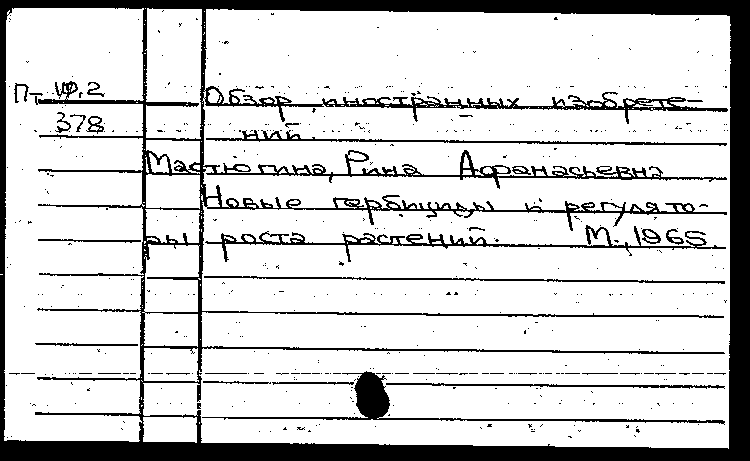 Пт VФ.2
378
Обзор иностранных изобрете-
ний.
Мастюгина, Рина Афанасьевна
Новые гербициды и регулято-
ры роста растений. М., 1965.